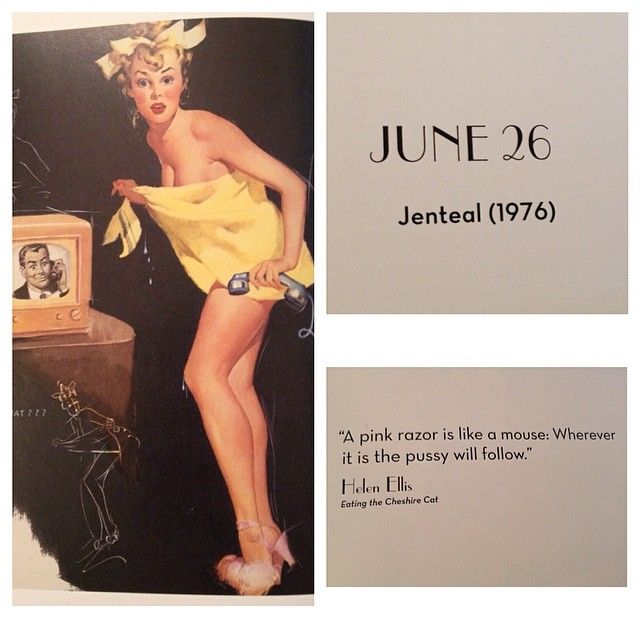 JUNE 26
Jenteal (1976)
AT???
“A pink razor is like a mouse: Wherever
it is the pussy will follow.”
Helen Ellis
Eating the Cheshire Cat